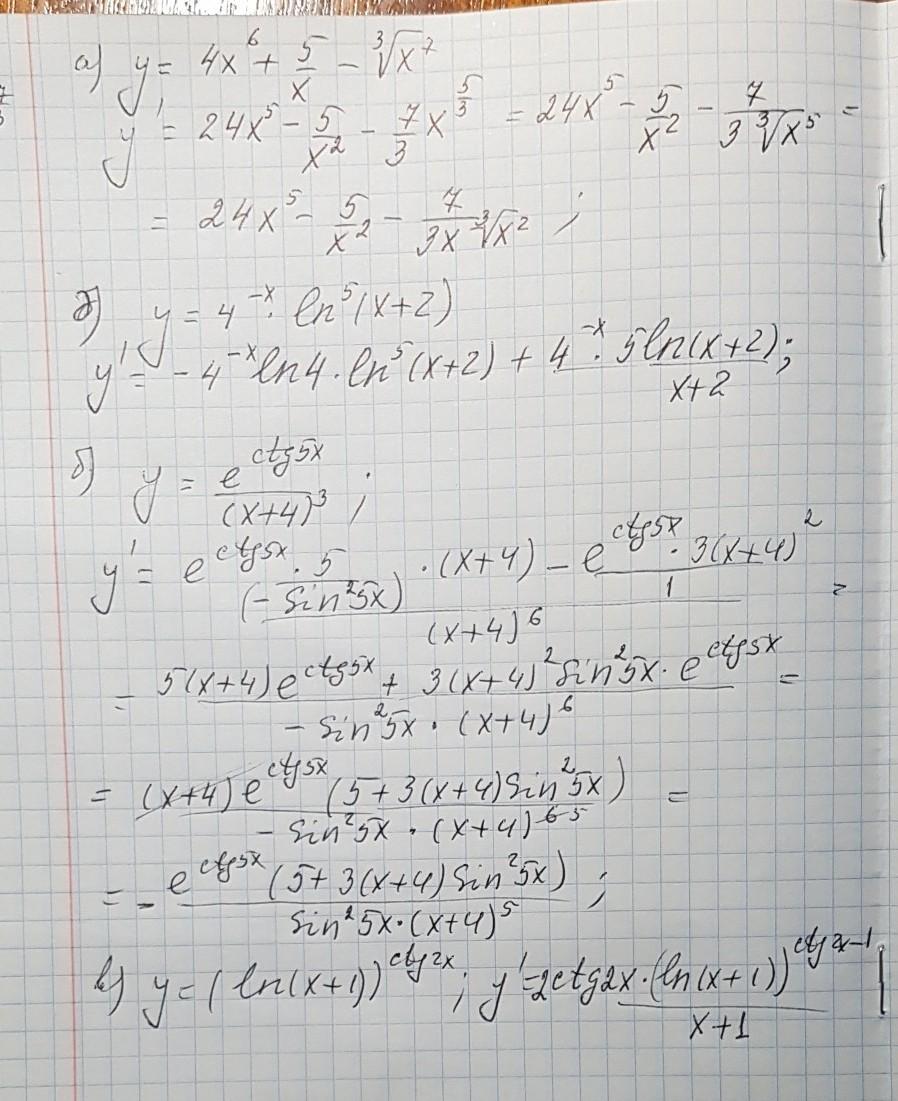 а) y = 4x⁶ + 5/x − ∛x⁷
y' = 24x⁵ − 5/x² − 7/3 x^(5/3) = 24x⁵ − 5/x² − 7/(3∛x⁵) =
= 24x⁵ − 5/x² − 7/(3x∛x²) ;
д) y = 4^(−x) · ln⁵(x+2)
y' = −4^(−x) ln4 · ln⁵(x+2) + 4^(−x) · 5ln(x+2)/(x+2) ;
б) y = e^(ctg5x)/(x+4)³ ;
y' = (e^(ctg5x) · 5/(−sin²5x) · (x+4) − e^(ctg5x) · 3(x+4)²/1)/(x+4)⁶ =
= (5(x+4)e^(ctg5x) + 3(x+4)² sin²5x · e^(ctg5x))/(−sin²5x · (x+4)⁶) =
= (x+4)e^(ctg5x) (5+3(x+4)sin²5x)/(−sin²5x · (x+4)^(6 5)) =
= − e^(ctg5x) (5+3(x+4)sin²5x)/(sin²5x · (x+4)⁵) ;
в) y = (ln(x+1))^(ctg2x) ; y' = 2ctg2x · (ln(x+1))^(ctg2x−1)/(x+1)